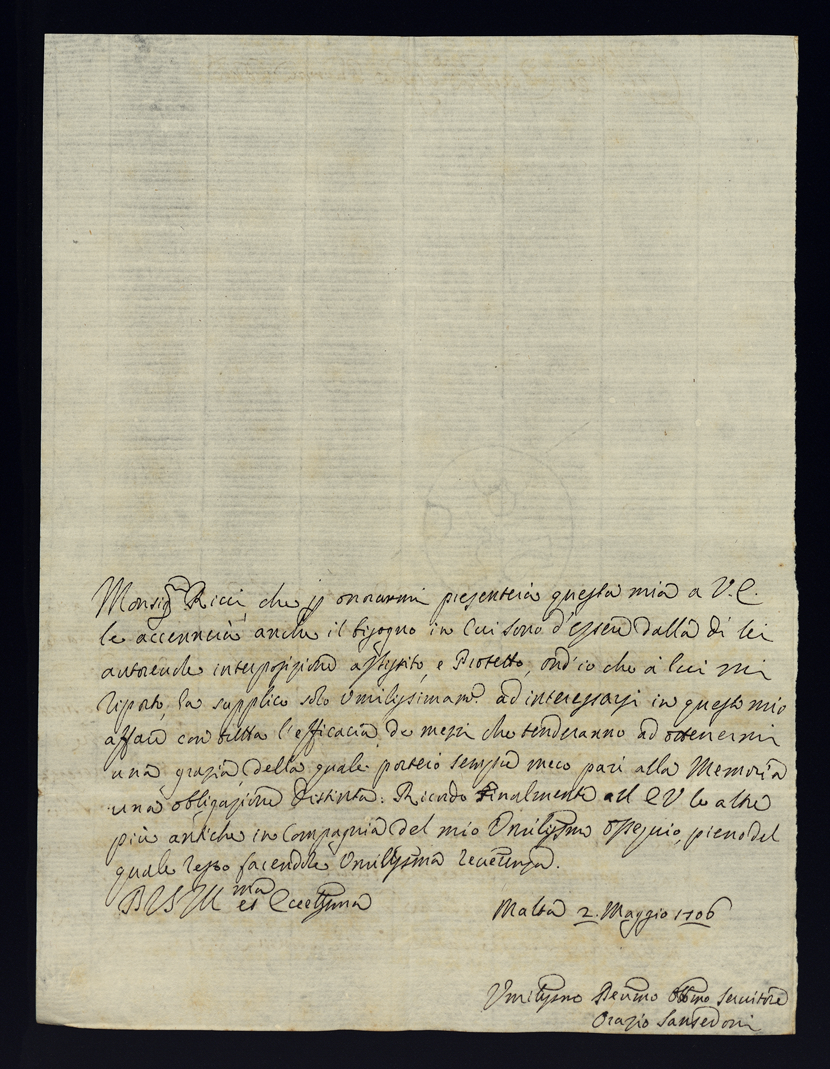 Monsig.r Ricci, che p onorarmi presenterà questa mia a V.E.
le accennerà anche il bisogno in cui sono d'essere dalla di lei
autoreuole interposizione assistito, e Protetto, ond'io che à lui mi
riporto, la supplico solo Umilissimam.e ad interessarsi in questo mio
affare con tutta l'efficacia de mezzi che tenderanno ad ottenermi
una grazia della quale porterò sempre meco pari alla Memoria
una obligazione distinta. Ricordo finalmente all' E V le altre
più antiche in compagnia del mio Umilissmo ossequio, pieno del
quale resto facendole Umilissima reuerenza.
Malta 2. Maggio 1706
Umilissmo Deumo Obbmo Seruitore
Orazio Sansedoni